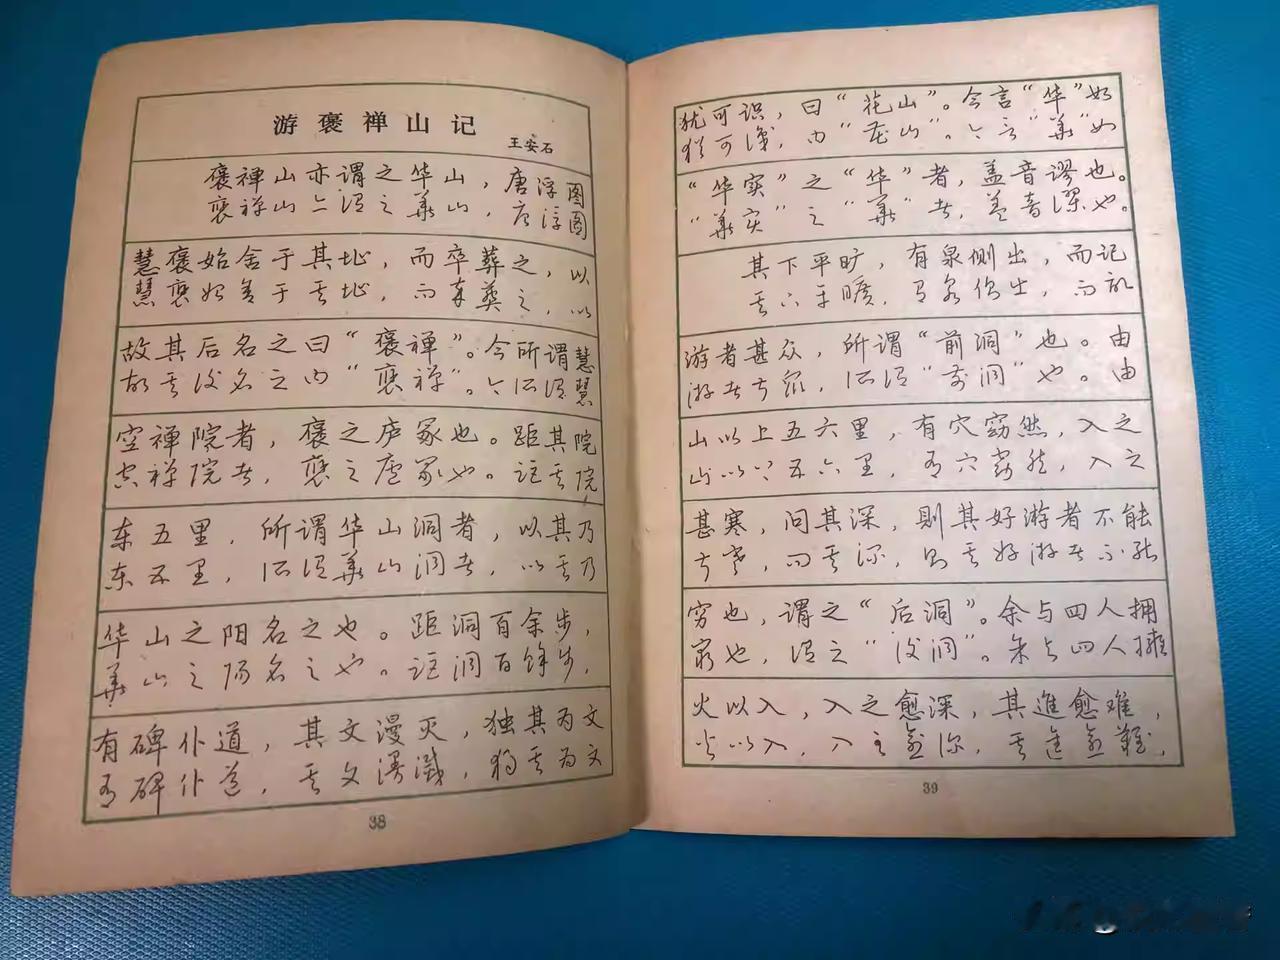 游褒禅山记
王安石
褒禅山亦谓之华山，唐浮图
褒禅山亦谓之華山，唐浮图
慧褒始舍于其址，而卒葬之，以
慧褒始舍于其址，而卒葬之，以
故其后名之曰“褒禅”。今所谓慧
故其後名之曰“褒禅”。今所谓慧
空禅院者，褒之庐冢也。距其院
空禅院者，褒之廬冢也。距其院
东五里，所谓华山洞者，以其乃
东五里，所谓華山洞者，以其乃
华山之阳名之也。距洞百余步，
華山之陽名之也。距洞百餘步，
有碑仆道，其文漫灭，独其为文
有碑仆道，其文漫滅，独其为文
38
犹可识，曰“花山”。今言“华”如
犹可識，曰“花山”。今言“華”如
“华实”之“华”者，盖音谬也。
“華实”之“華”者，盖音謬也。
其下平旷，有泉侧出，而记
其下平曠，有泉侧出，而记
游者甚众，所谓“前洞”也。由
游者甚众，所谓“前洞”也。由
山以上五六里，有穴窈然，入之
山以上五六里，有穴窈然，入之
甚寒，问其深，则其好游者不能
甚寒，问其深，则其好游者不能
穷也，谓之“后洞”。余与四人拥
穷也，谓之“後洞”。余与四人擁
火以入，入之愈深，其進愈难，
火以入，入之愈深，其進愈難，
39